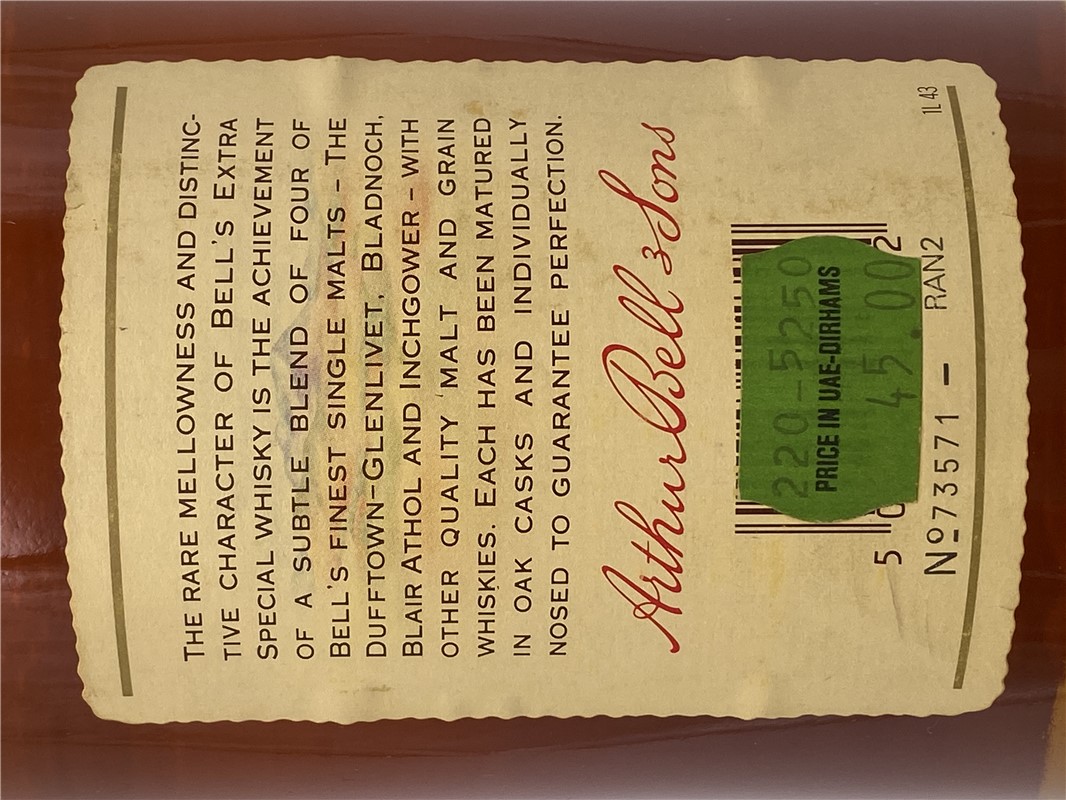 THE RARE MELLOWNESS AND DISTINC-
TIVE CHARACTER OF BELL'S EXTRA
SPECIAL WHISKY IS THE ACHIEVEMENT
OF A SUBTLE BLEND OF FOUR OF
BELL'S FINEST SINGLE MALTS - THE
DUFFTOWN-GLENLIVET, BLADNOCH,
BLAIR ATHOL AND INCHGOWER - WITH
OTHER QUALITY MALT AND GRAIN
WHISKIES. EACH HAS BEEN MATURED
IN OAK CASKS AND INDIVIDUALLY
NOSED TO GUARANTEE PERFECTION.
Arthur Bell & Sons
220-5250
PRICE IN UAE-DIRHAMS
45.00
5
2
Nº 73571 -
RAN2
1L 43